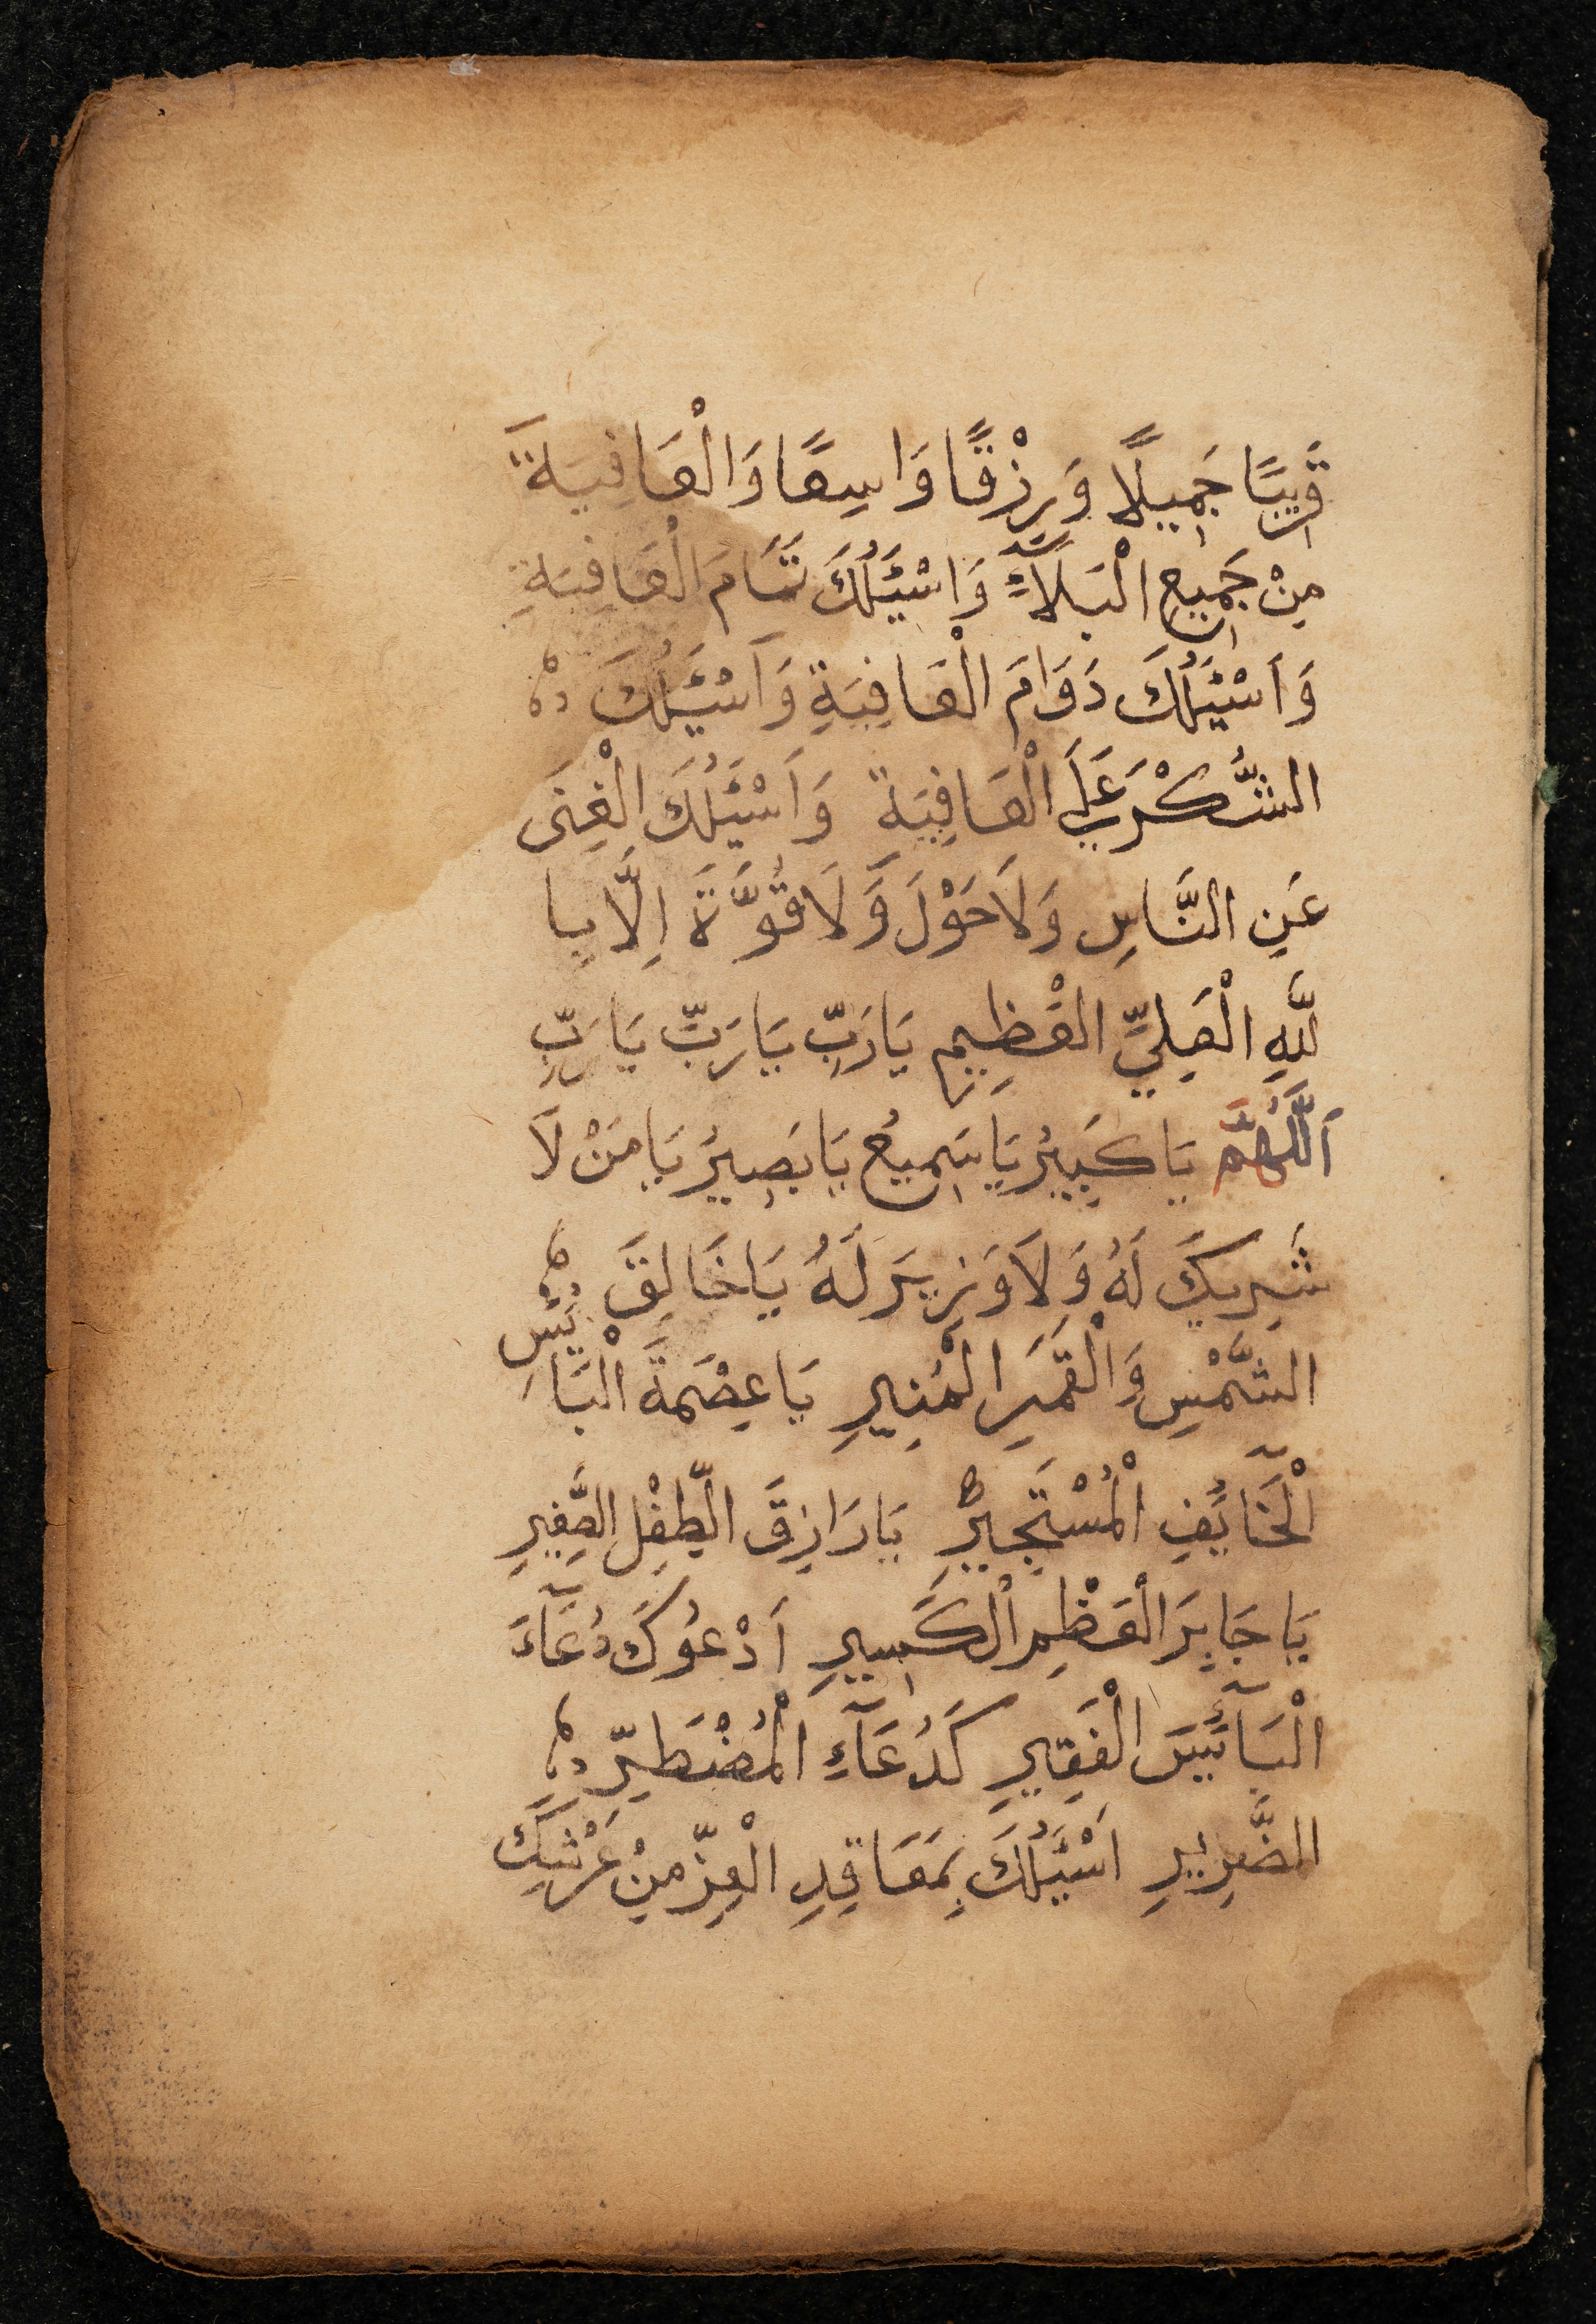 قَرِيبًا جَمِيلًا وَرِزْقًا وَاسِعًا وَالْعَافِيَةَ
مِنْ جَمِيعِ الْبَلَآءِ وَاسْئَلُكَ تَمَامَ الْعَافِيَةِ
وَاَسْئَلُكَ دَوَامَ الْعَافِيَةِ وَاَسْئَلُكَ
الشُّكْرَ عَلَى الْعَافِيَةِ وَاَسْئَلُكَ الْغِنَى
عَنِ النَّاسِ وَلَا حَوْلَ وَلَا قُوَّةَ اِلَّا بِا
للَّهِ الْعَلِيِّ الْعَظِيمِ يَارَبِّ يَارَبِّ يَارَبِّ
اَللَّهُمَّ يَاكَبِيرُ يَاسَمِيعُ يَابَصِيرُ يَامَنْ لَا
شَرِيكَ لَهُ وَلَا وَزِيرَ لَهُ يَاخَالِقَ
الشَّمْسِ وَالْقَمَرِ الْمُنِيرِ يَاعِصْمَةَ الْبَائِسِ
الْخَآئِفِ الْمُسْتَجِيرِ يَارَازِقَ الطِّفْلِ الصَّغِيرِ
يَاجَابِرَ الْعَظْمِ الْكَسِيرِ اَدْعُوكَ دُعَآءَ
الْبَآئِسِ الْفَقِيرِ كَدُعَآءِ الْمُضْطَرِّ
الضَّرِيرِ اَسْئَلُكَ بِمَعَاقِدِ الْعِزِّ مِنْ عَرْشِكَ